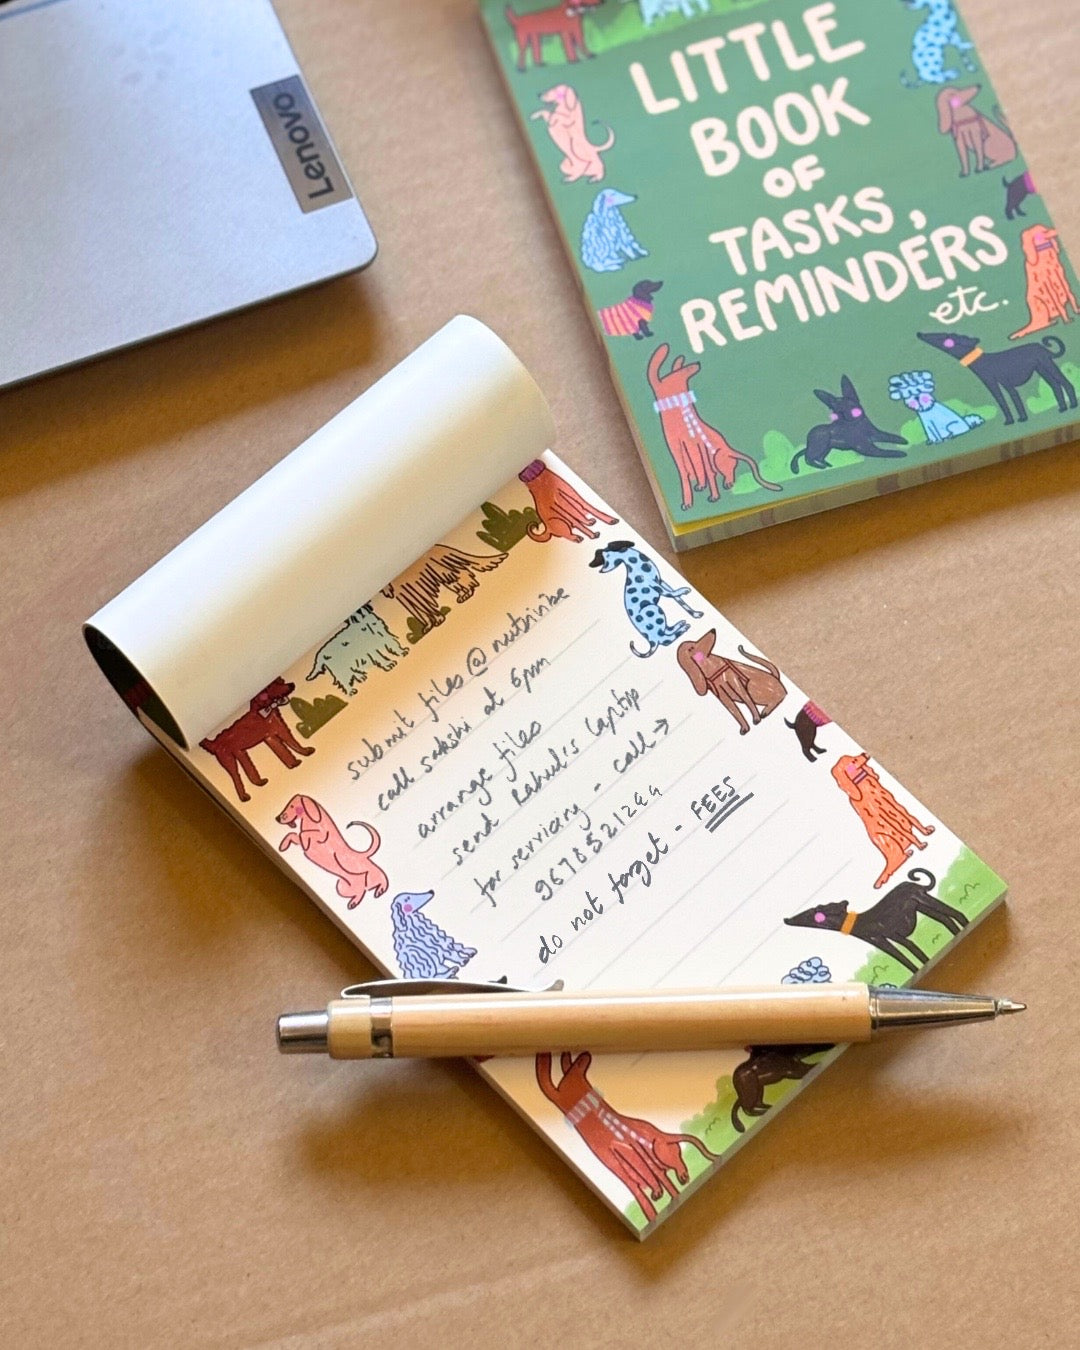 Lenovo
LITTLE
BOOK
OF
TASKS,
REMINDERS
etc.
submit files @ nutrivibe
call sakshi at 6pm
arrange files
send Rahul's laptop
for servicing - call →
9678521244
do not forget - FEES